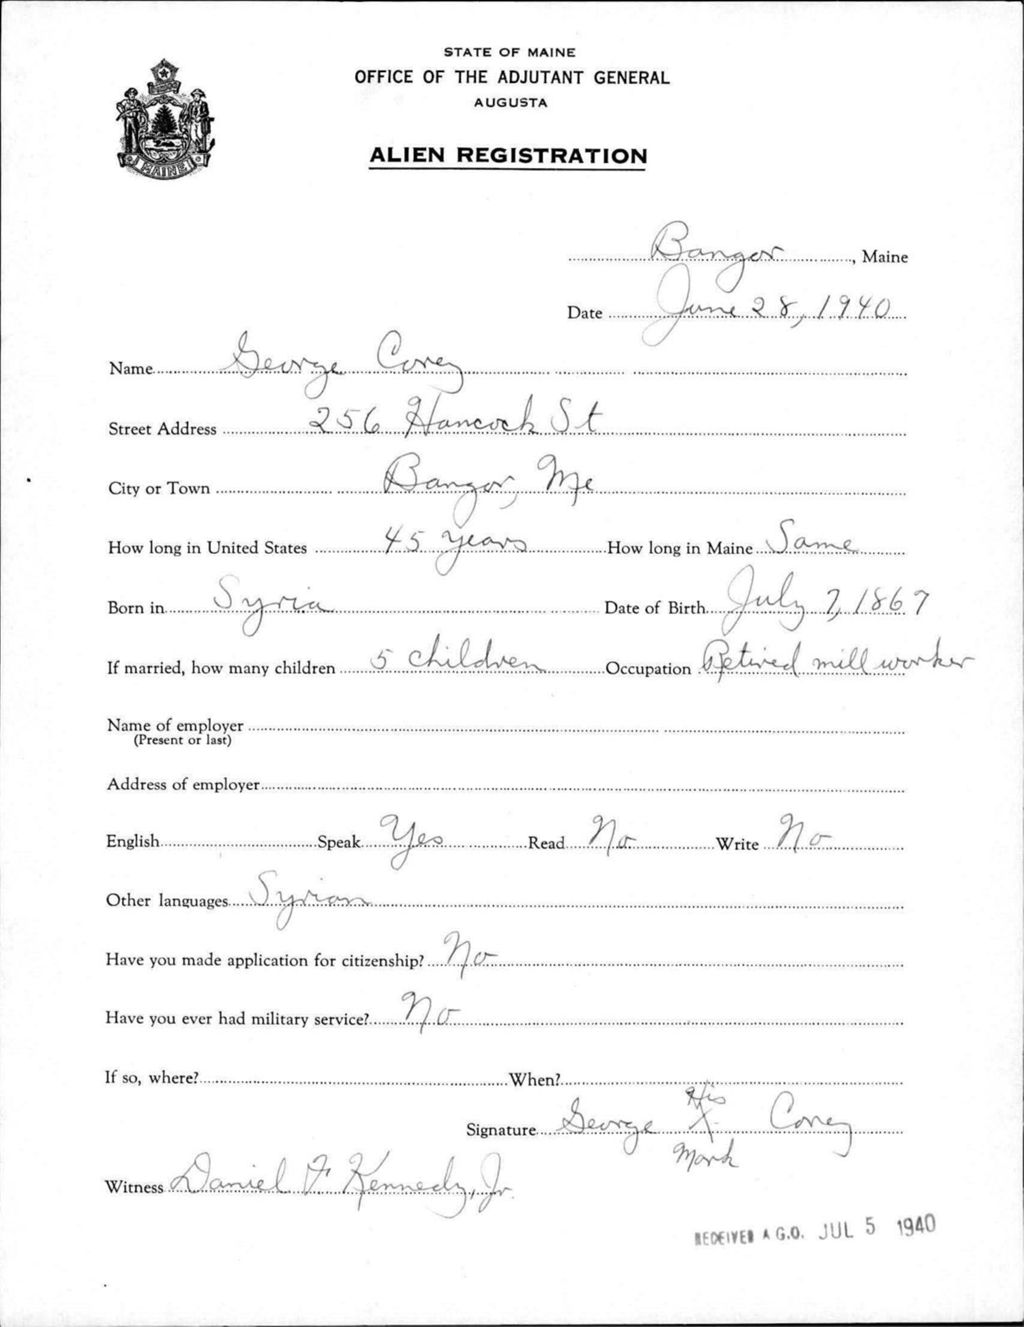 STATE OF MAINE
OFFICE OF THE ADJUTANT GENERAL
AUGUSTA
ALIEN REGISTRATION
MAINE
Bangor, Maine
Date June 28, 1940
Name George Corey
Street Address 256 Hancock St
City or Town Bangor, Me
How long in United States 45 years How long in Maine Same
Born in Syria Date of Birth July 7, 1867
If married, how many children 5 children Occupation Retired mill worker
Name of employer
(Present or last)
Address of employer
English Speak Yes Read No Write No
Other languages Syrian
Have you made application for citizenship? No
Have you ever had military service? No
If so, where? When?
His
Signature George X Corey
Mark
Witness Daniel F Kennedy, Jr.
RECEIVED A.G.O. JUL 5 1940